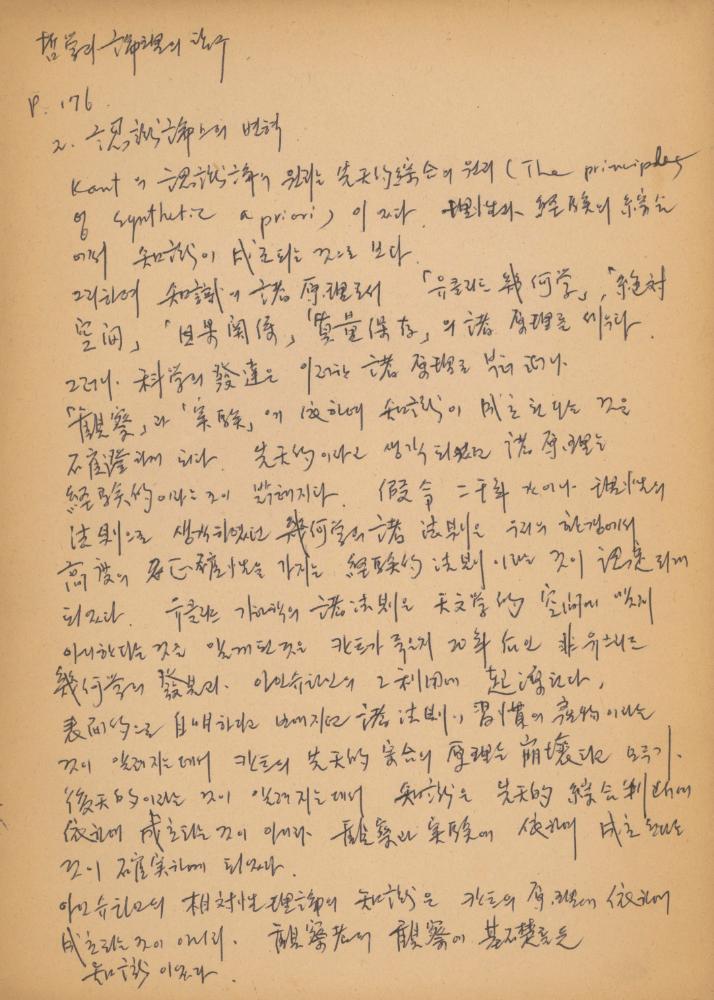 哲学과 論理의 친구
P. 176
2. 認識論上의 변혁
Kant의 認識論의 원리는 先天的綜合의 원리 (The principles
of synthetic a priori) 이었다. 理性과 経験의 綜合
에서 知識이 成立되는 것으로 보다.
그리하여 知識의 諸原理로서 「유클리드 幾何学」, 「絶対
空间」, 「因果関係」, 「質量保存」의 諸 原理를 세우다.
그러나. 科学의 發達은 이러한 諸 原理로 부터 떠나.
「観察」과 「実験」에 依하여 知識이 成立한다는 것을
石窿하게 되다. 先天的이라고 생각되었던 諸原理는
経験的이라는 것이 밝혀지다. 假令 二千年 사이나 理性의
法則으로 생각하였던 幾何学의 諸 法則은 우리의 환경에서
高度의 正確性을 가지는 経験的 法則이라는 것이 認定되게
되었다. 유클리드 기하학의 諸法則은 天文学的 空间에 맞지
아니한다는 것을 알게된것은 칸트가 죽은지 20年 后인 非유크리드
幾何学의 發見과. 아인슈타인의 그 利用에 起源한다,
表面的으로 自明하다고 보여지던 諸法則이 習慣의 産物이라는
것이 알려지는데서 칸트의 先天的 宗合의 原理는 崩壊되고
後天的이라는 것이 알려지는데서 知識은 先天的 綜合判斷에
依하여 成立되는 것이 아니라 観察과 実験에 依하여 成立한다는
것이 確実하게 되었다.
아인슈타인의 相対性理論의 知識은 칸트의 原理에 依하여
成立되는 것이 아니라. 観察者의 観察이 基礎를둔
知識이었다.